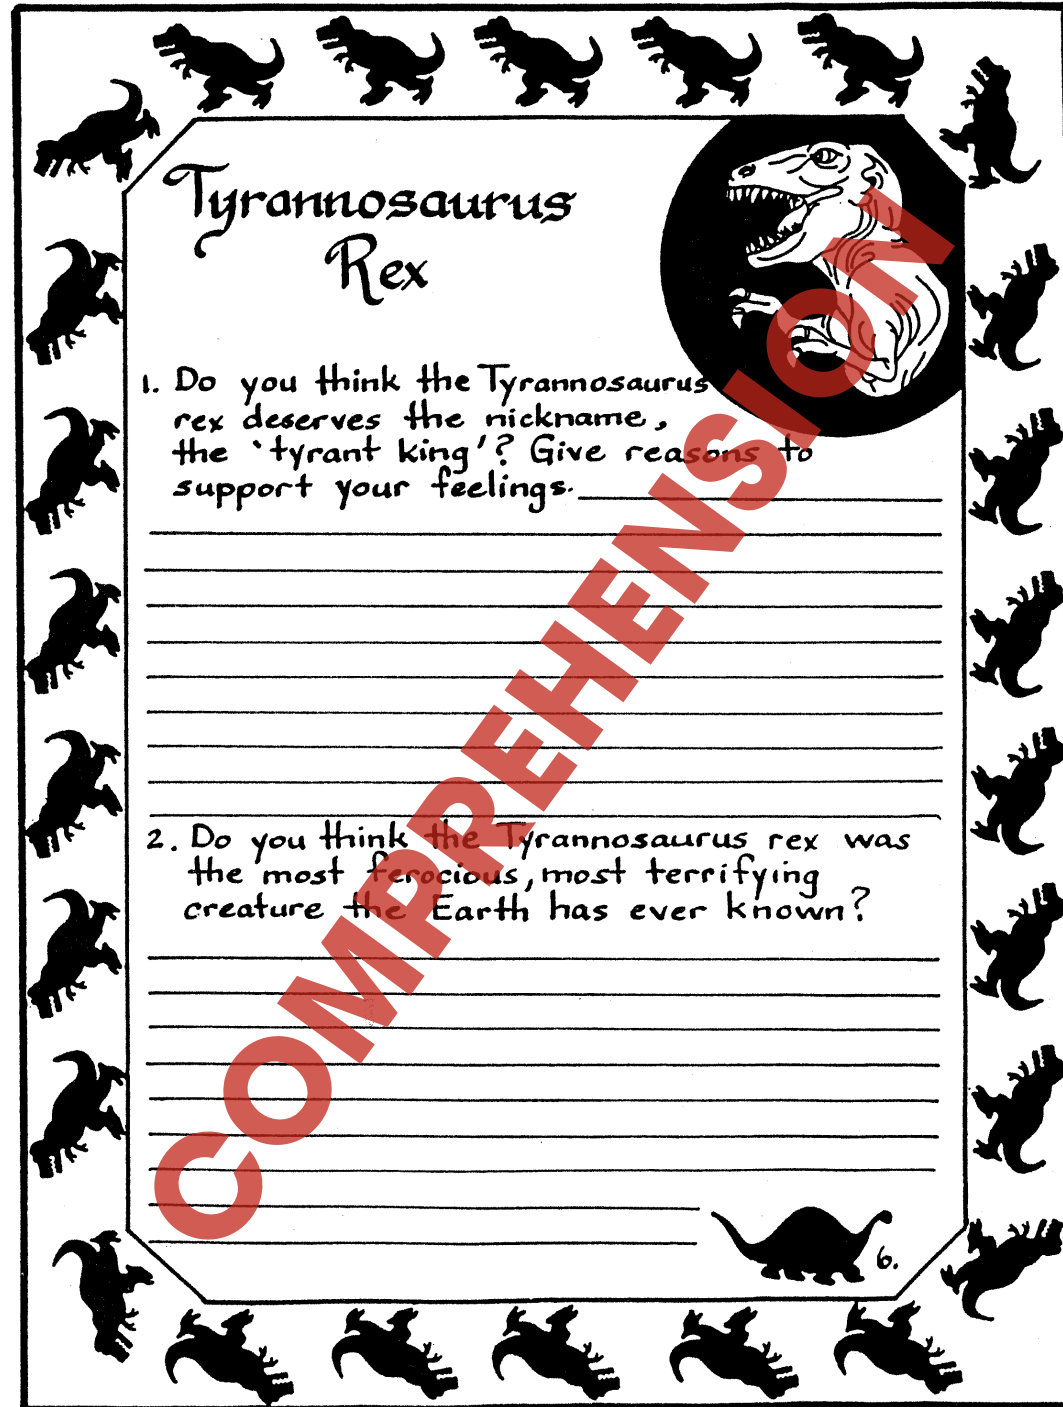 Tyrannosaurus
Rex
1. Do you think the Tyrannosaurus
rex deserves the nickname,
the 'tyrant king'? Give reasons to
support your feelings.
2. Do you think the Tyrannosaurus rex was
the most ferocious, most terrifying
creature the Earth has ever known?
6.
COMPREHENSION